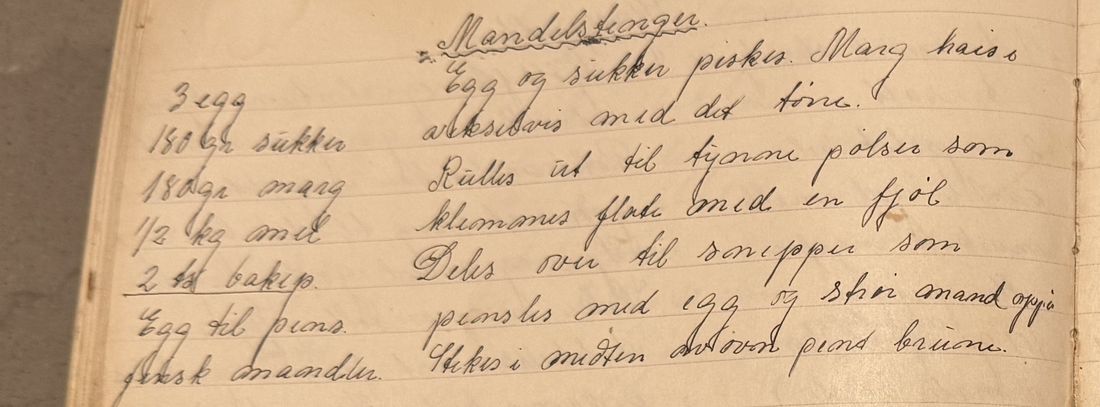 Mandelstenger.
3 egg
180 gr sukker
180 gr marg
1/2 kg mel
2 ts bakep.
Egg til pens.
mandler.
Egg og sukker piskes. Marg haes i
vekselvis med det tørre.
Rulles ut til tynne pølser som
klemmes flate med en fjøl
Deles over til snepper som
pensles med egg og strø mand oppå
Stekes i midten av ovn pent brune.